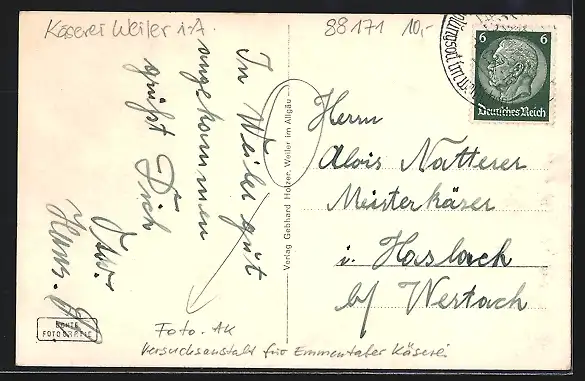 Käserei Weiler i. A.
88171 10,-
In Weiler gut
angekommen
grüßt Dich
Hans.
Verlag Gebhard Holzer, Weiler im Allgäu
6 6
Deutsches Reich
Herrn
Alois Natterer
Meisterkäser
i. Haslach
b/ Wertach
ECHTE
FOTOGRAFIE
Foto-AK
Versuchsanstalt für Emmentaler Käserei